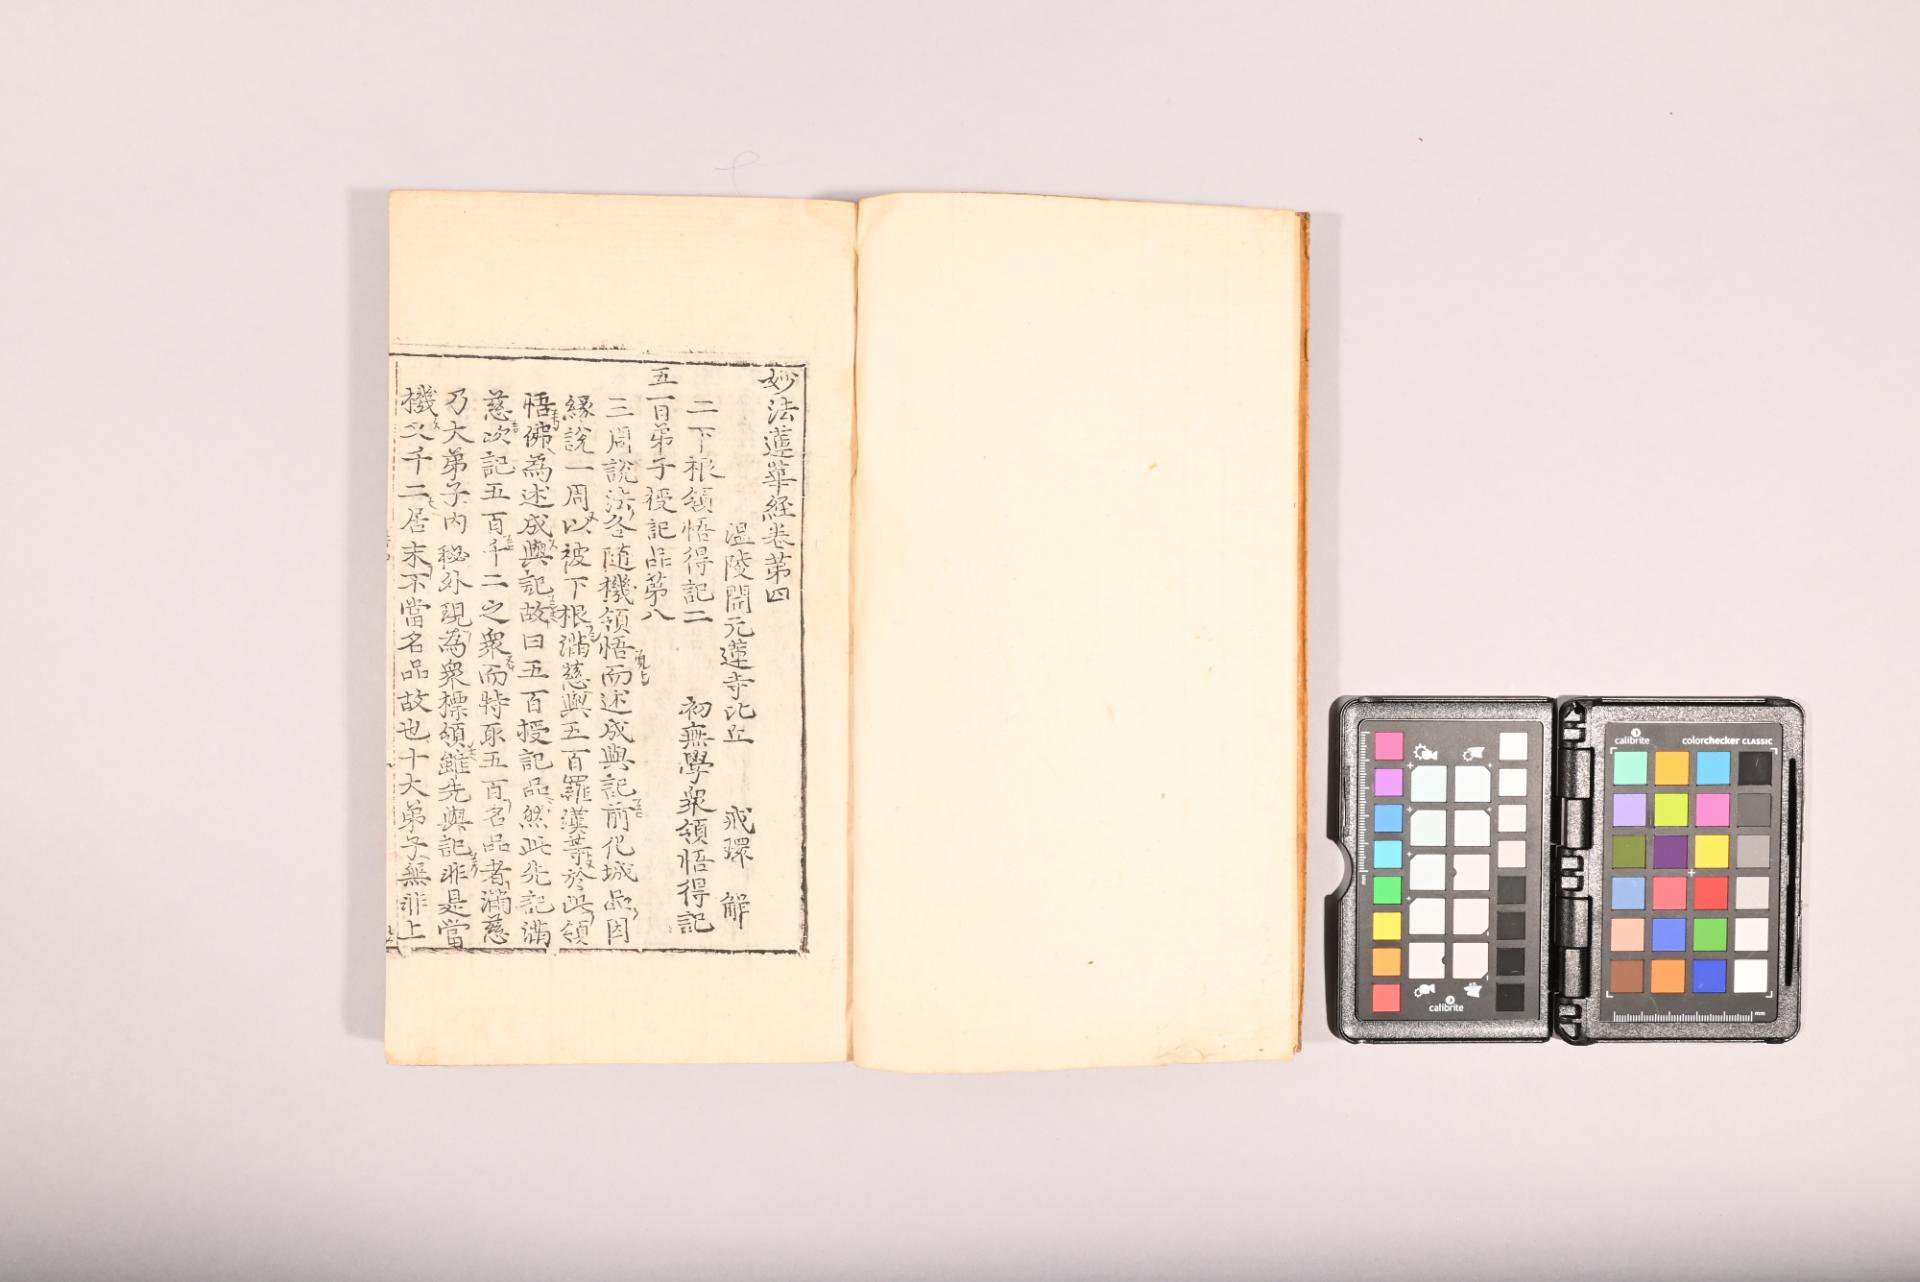 妙法蓮華経卷第四
温陵開元蓮寺比丘 戒環 解
二下根領悟得記二 初無學衆領悟得記
五百弟子授記品第八
三周說法各随機領悟而述成與記前化城品因
緣說一周以被下根滿慈與五百羅漢等於此領
悟佛為述成與記故曰五百授記品然此先記滿
慈次記五百千二之衆而特取五百名品者滿慈
乃大弟子內秘外現為衆標領雖先與記非是當
機千二居末不當名品故也十大弟子無非上
calibrite
calibrite
colorchecker CLASSIC
mm